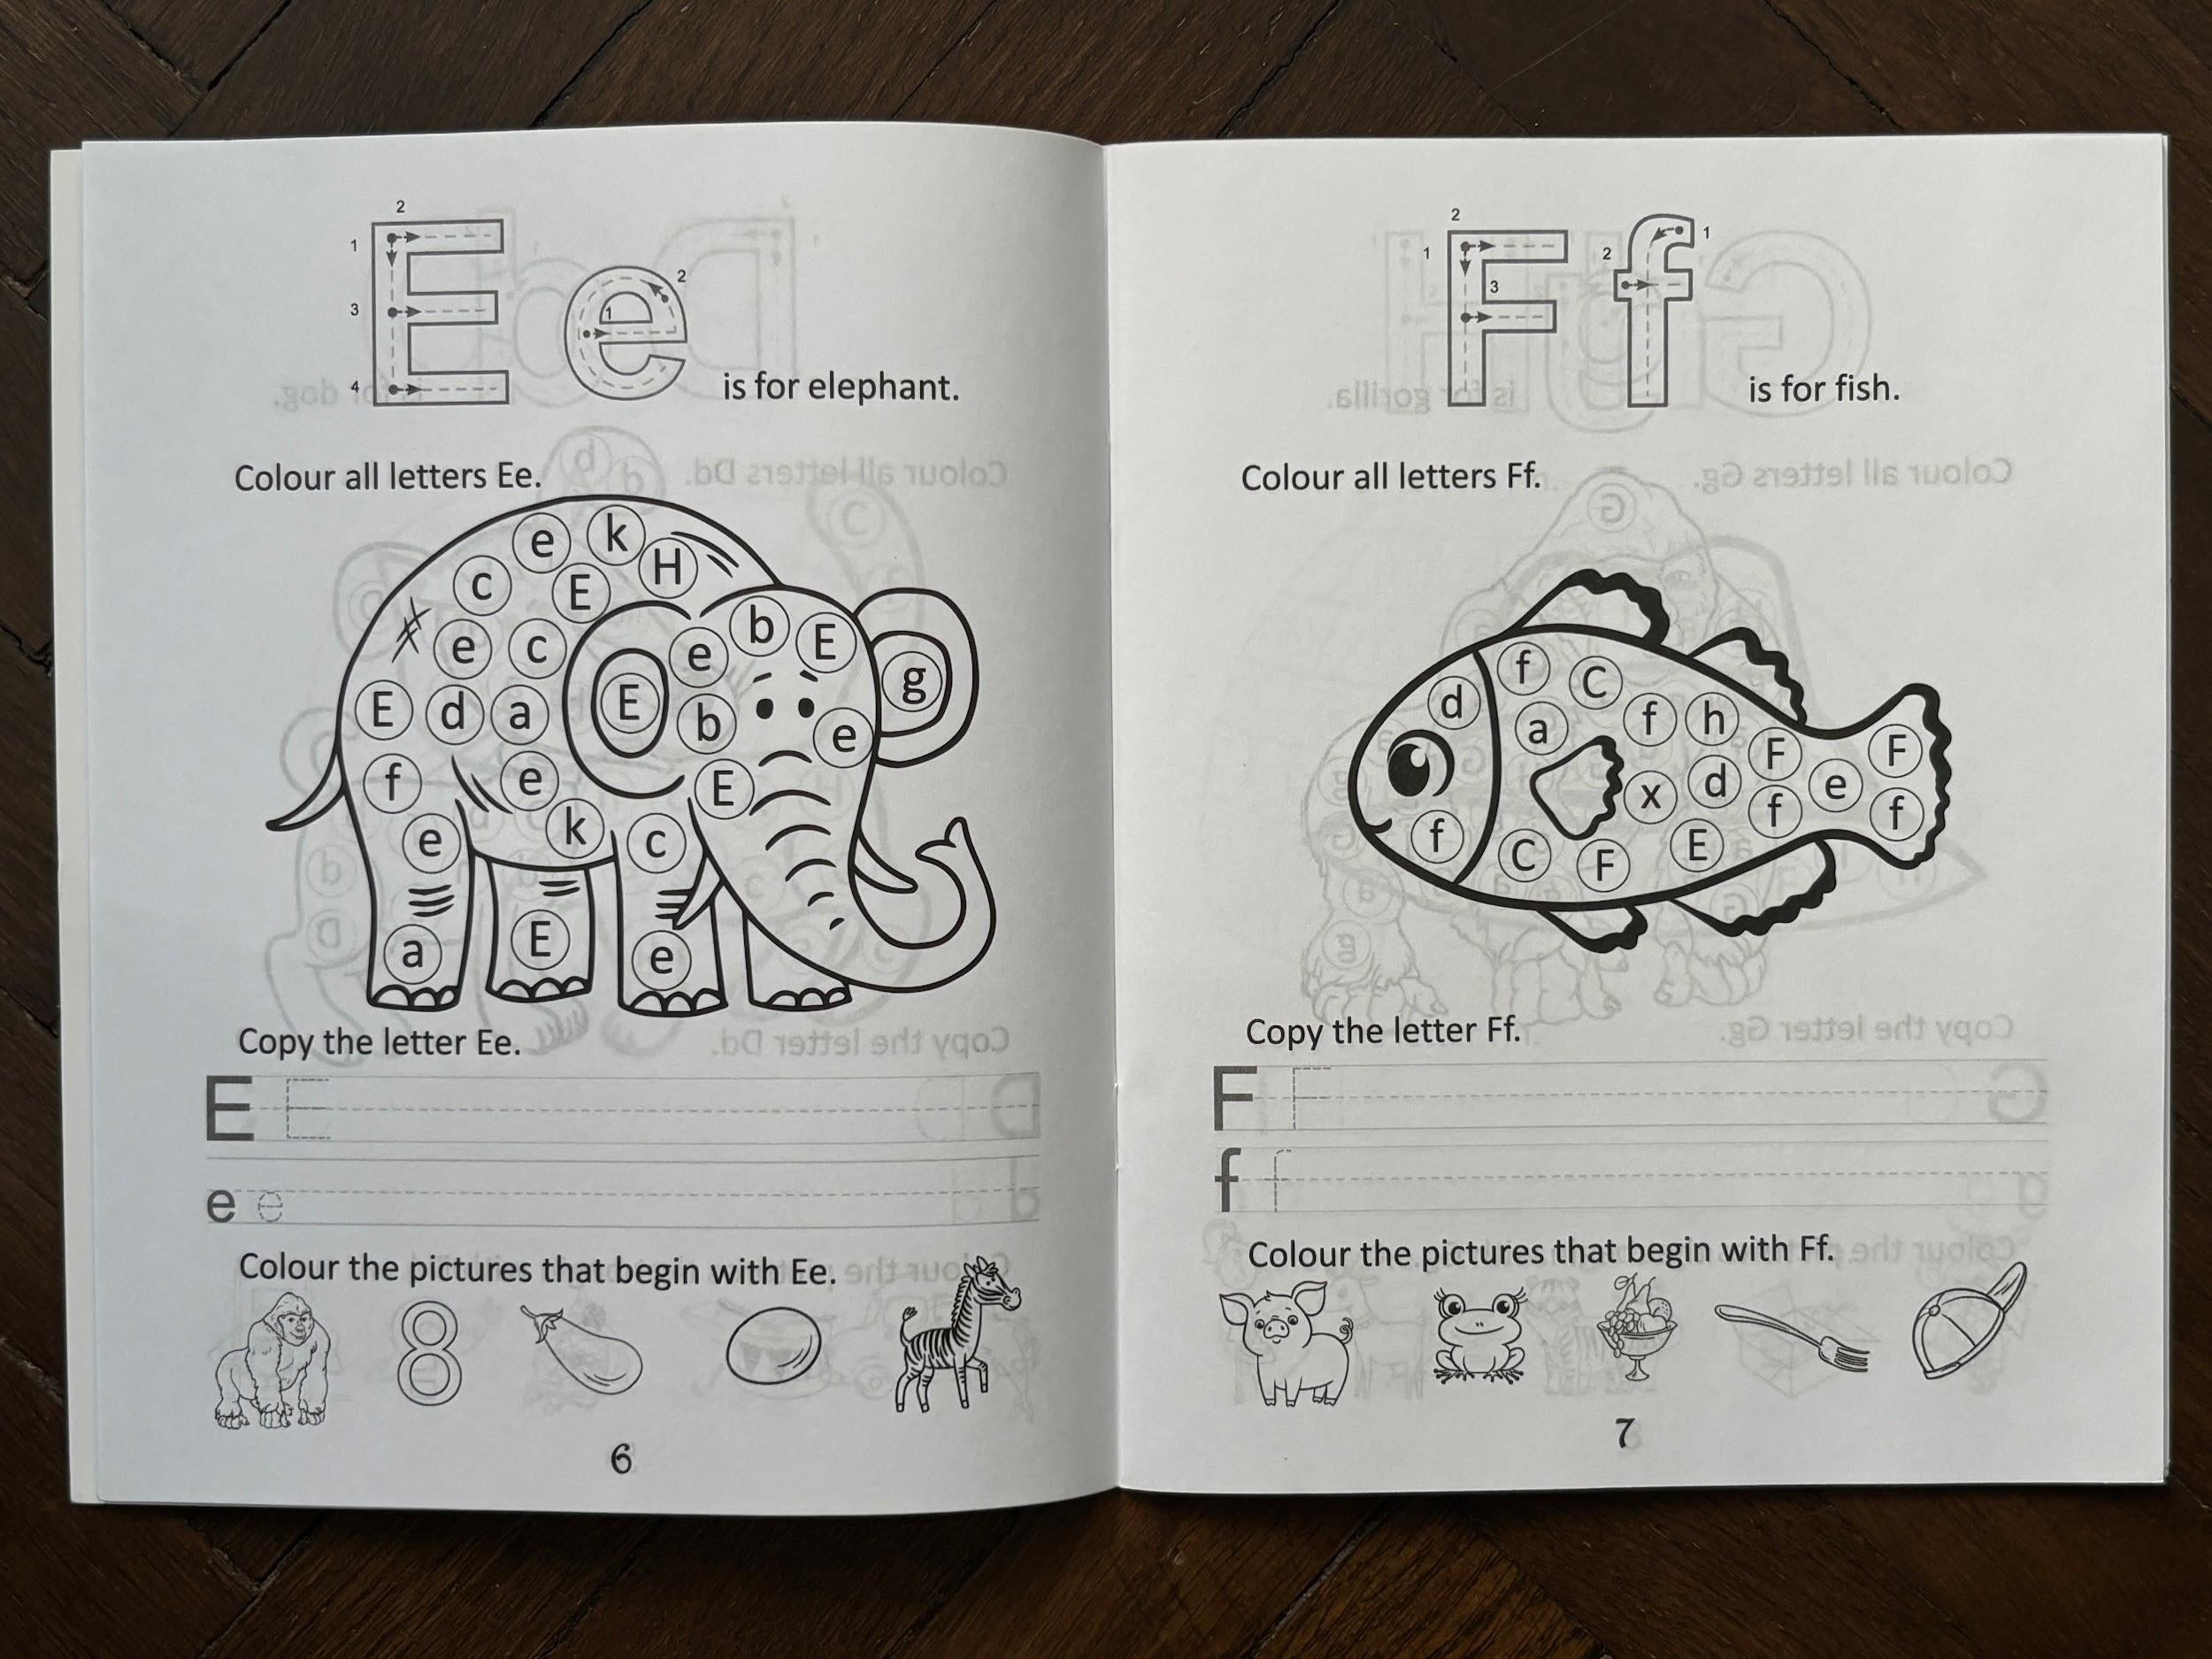 2
1
E e
2
1
3
4
is for elephant.
Colour all letters Ee.
e k
c E H
e c e b E
E d a E b e g
f e E
e k c
a E e
Copy the letter Ee.
E E
e e
Colour the pictures that begin with Ee.
8
6
2
1
F f
2
1
3
is for fish.
Colour all letters Ff.
f C
d a f h
F F
x d e
f C F E f f
Copy the letter Ff.
F F
f f
Colour the pictures that begin with Ff.
7